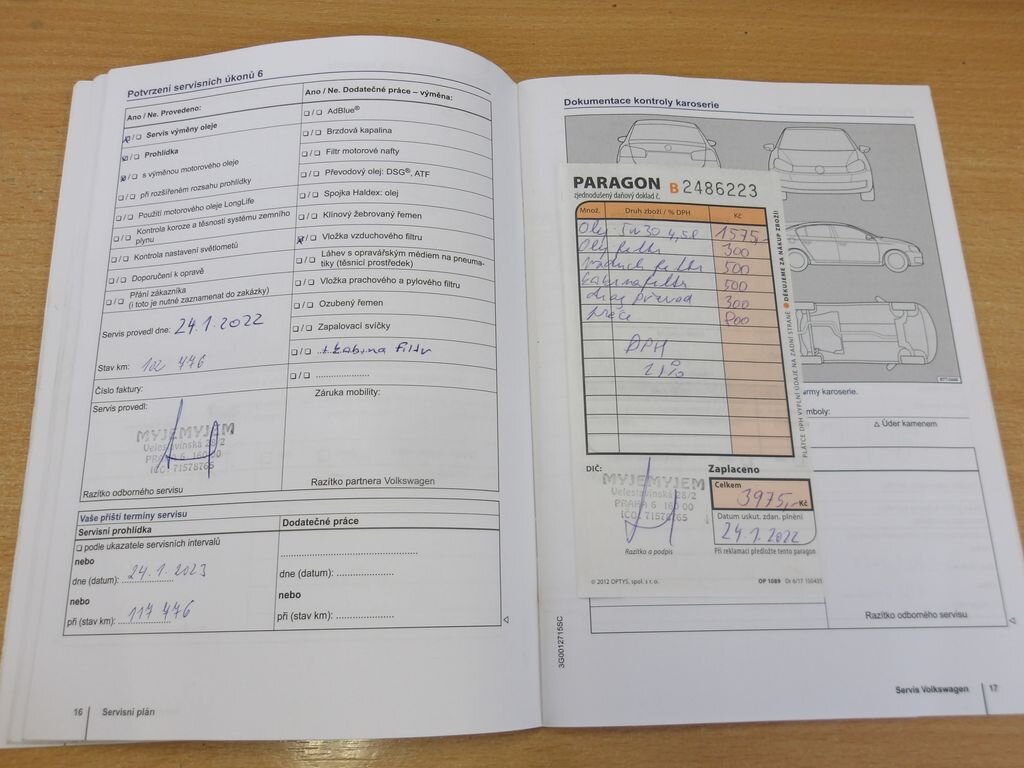 Potvrzení servisních úkonů 6
Ano / Ne. Provedeno:
Servis výměny oleje
Prohlídka
s výměnou motorového oleje
při rozšířeném rozsahu prohlídky
Použití motorového oleje LongLife
Kontrola koroze a těsnosti systému zemního
plynu
Kontrola nastavení světlometů
Doporučení k opravě
Přání zákazníka
(i toto je nutné zaznamenat do zakázky)
Servis provedl dne: 24.1.2022
Stav km: 102 476
Číslo faktury:
Servis provedl:
MYJEMYJEM
Veleslavínská 28/2
PRAHA 6 160 00
IČO: 71578765
Razítko odborného servisu
Ano / Ne. Dodatečné práce – výměna:
AdBlue®
Brzdová kapalina
Filtr motorové nafty
Převodový olej: DSG®, ATF
Spojka Haldex: olej
Klínový žebrovaný řemen
Vložka vzduchového filtru
Láhev s opravářským médiem na pneuma-
tiky (těsnicí prostředek)
Vložka prachového a pylového filtru
Ozubený řemen
Zapalovací svíčky
+ kabina filtr
Záruka mobility:
Razítko partnera Volkswagen
Vaše příští termíny servisu
Servisní prohlídka
podle ukazatele servisních intervalů
nebo
dne (datum): 24.1.2023
nebo
při (stav km): 117 476
Dodatečné práce
dne (datum):
nebo
při (stav km):
16 Servisní plán
Dokumentace kontroly karoserie
PARAGON B2486223
zjednodušený daňový doklad č.
Množ. Druh zboží / % DPH Kč
Olej 5w30 4,5l 1575,-
Olej filtr 300
vzduch filtr 500
kabina filtr 500
300
práce 800
DPH
21%
DIČ:
MYJEMYJEM
Veleslavínská 28/2
PRAHA 6 160 00
IČO: 71578765
Razítko a podpis
Zaplaceno
Celkem
3975,- Kč
Datum uskut. zdan. plnění
24.1.2022
Při reklamaci předložte tento paragon
© 2012 OPTYS, spol. s r.o. OP 1089
PLÁTCE DPH VYPLNÍ ÚDAJE NA ZADNÍ STRANĚ DĚKUJEME ZA NÁKUP ZBOŽÍ!
army karoserie.
mboly:
Úder kamenem
Razítko odborného servisu
3G0012715SC
Servis Volkswagen 17